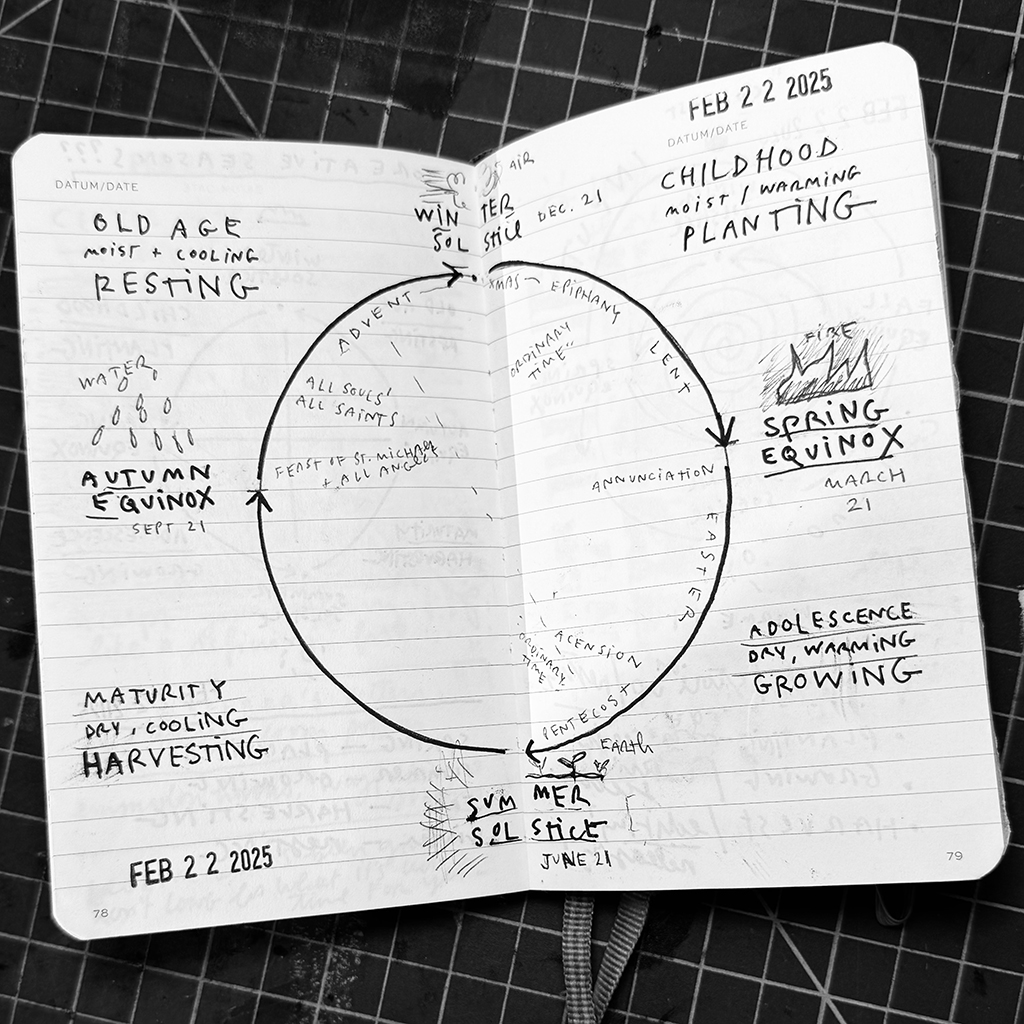 FEB 2 2 2025
DATUM/DATE
CHILDHOOD
MOIST / WARMING
PLANTING
AIR
WINTER
SOLSTICE
DEC. 21
DATUM/DATE
OLD AGE
MOIST + COOLING
RESTING
ADVENT
XMAS – EPIPHANY
ORDINARY
TIME
LENT
WATER
ALL SOULS'
ALL SAINTS
FEAST OF ST. MICHAEL
+ ALL ANGELS
AUTUMN
EQUINOX
SEPT 21
FIRE
SPRING
EQUINOX
MARCH
21
ANNUNCIATION
EASTER
ACENSION
ORDINARY
TIME
PENTECOST
ADOLESCENCE
DRY, WARMING
GROWING
MATURITY
DRY, COOLING
HARVESTING
EARTH
SUMMER
SOLSTICE
JUNE 21
FEB 2 2 2025
78
79